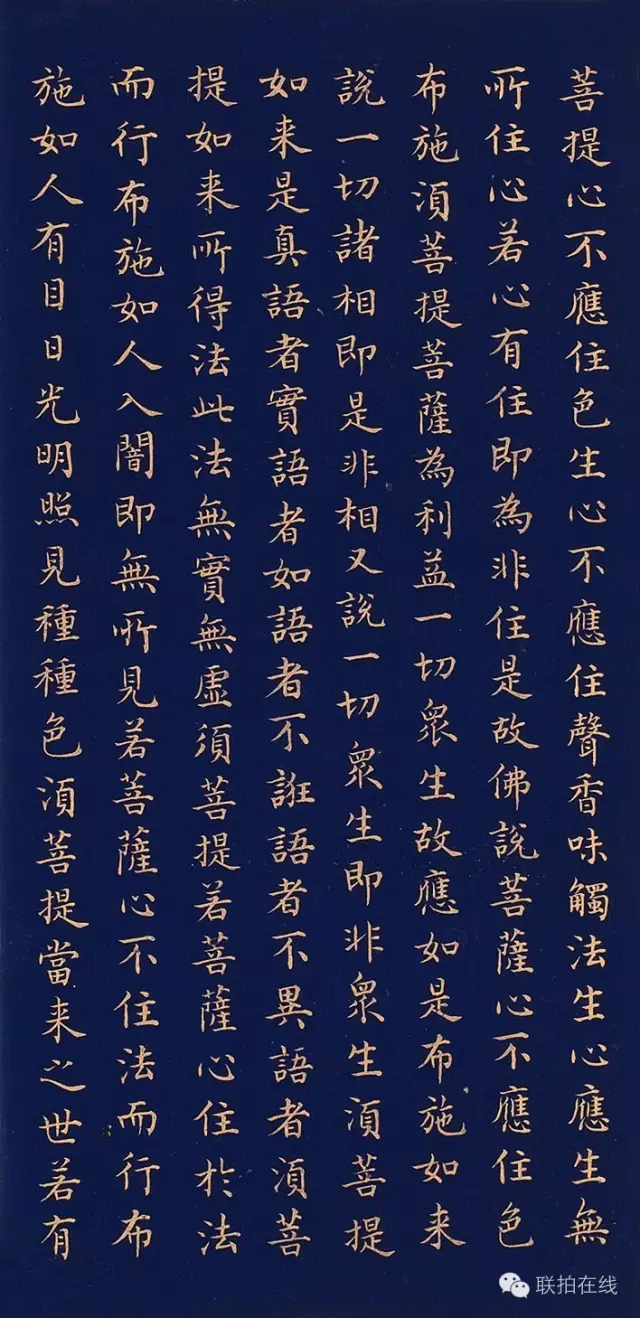 菩提心不應住色生心不應住聲香味觸法生心應生無
所住心若心有住即為非住是故佛說菩薩心不應住色
布施湏菩提菩薩為利益一切眾生故應如是布施如来
說一切諸相即是非相又說一切眾生即非眾生湏菩提
如来是真語者實語者如語者不誑語者不異語者湏菩
提如来所得法此法無實無虛須菩提若菩薩心住於法
而行布施如人入闇即無所見若菩薩心不住法而行布
施如人有目日光明照見種種色湏菩提當来之世若有
联拍在线